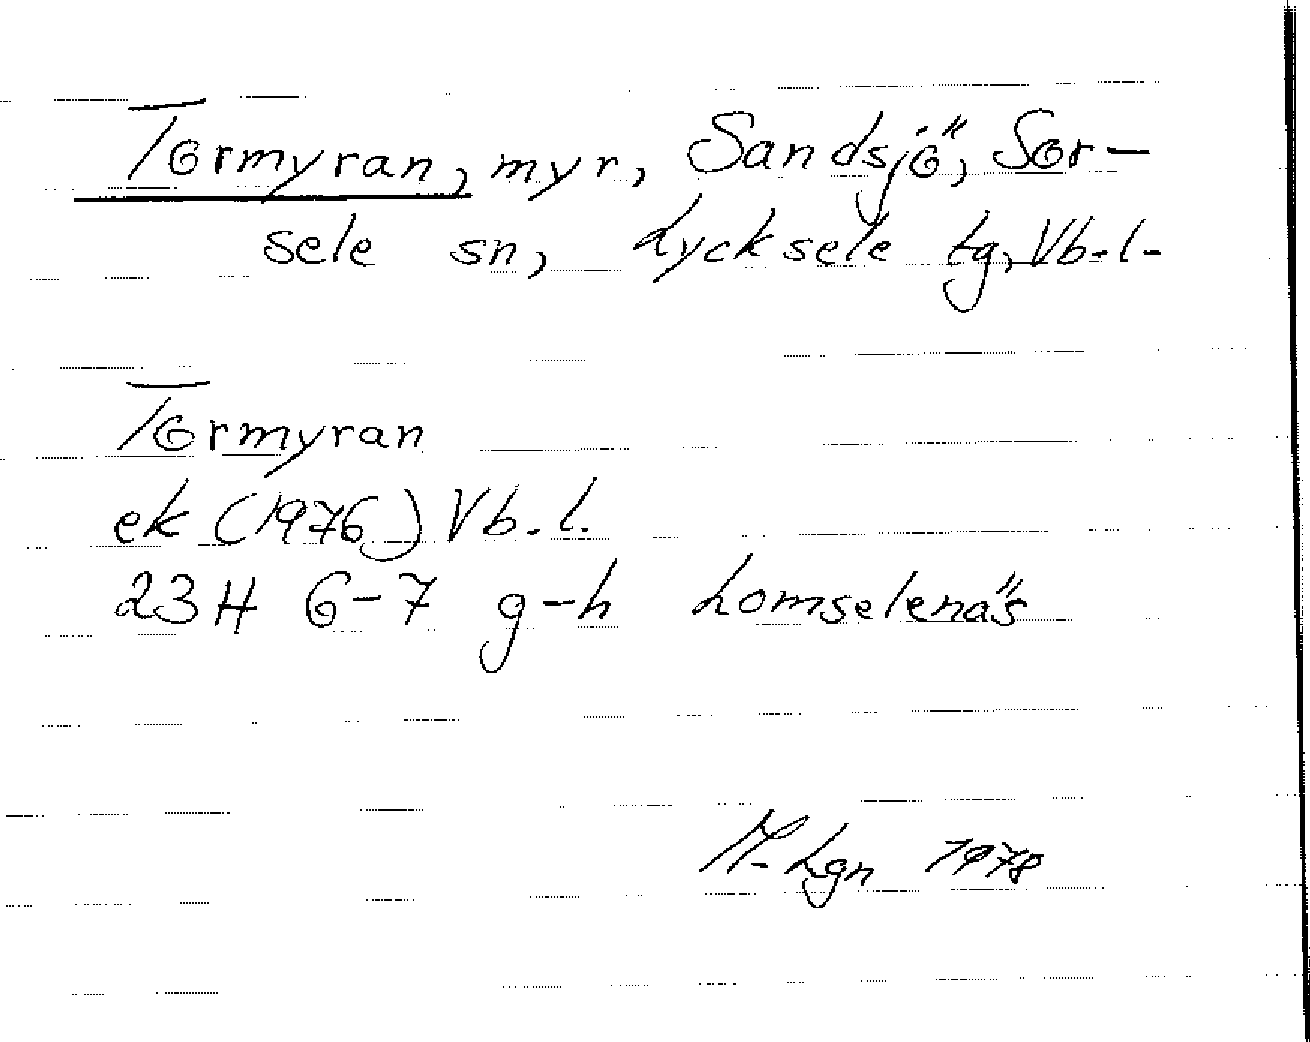 Tormyran, myr, Sandsjö, Sor-
sele sn, Lycksele tg, Vb.l.
Tormyran
ek (1976) Vb.l.
23H 6-7 g-h Lomselenäs
M-Lgn 1978